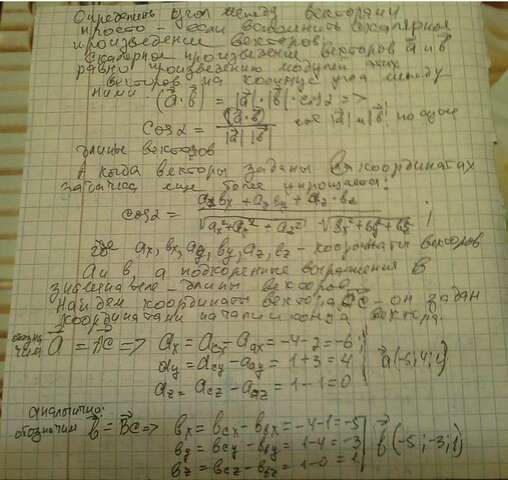 Определить угол между векторами
просто - если вспомнить скалярное
произведение векторов.
Скалярное произведение векторов a⃗ и b⃗
равно произведению модулей этих
векторов на косинус угла между
ними. (a⃗·b⃗) = |a⃗|·|b⃗|·cos α =>
cos α = (a⃗·b⃗) / |a⃗||b⃗| где |a⃗| и |b⃗|, модули
длины векторов
А когда векторы заданы в координатах
задача еще более упрощается:
cos α = (ax bx + ay by + az·bz) / (√(ax²+ay²+az²) · √(bx²+by²+bz²)) ;
где ax, bx, ay, by, az, bz - координаты векторов
a и b, а подкоренные выражения в
знаменателе - длины векторов.
Найдем координаты вектора AC - он задан
координатами начала и конца вектора.
обозначим a⃗ = AC => ax = acx - aax = -4-2 = -6;
ay = acy - aay = 1+3 = 4
az = acz - aaz = 1-1 = 0
аналогично:
обозначим b⃗ = BC => bx = bcx - bbx = -4-1 = -5
by = bcy - bby = 1-4 = -3
bz = bcz - bbz = 1-0 = 1
b⃗(-5; -3; 1)